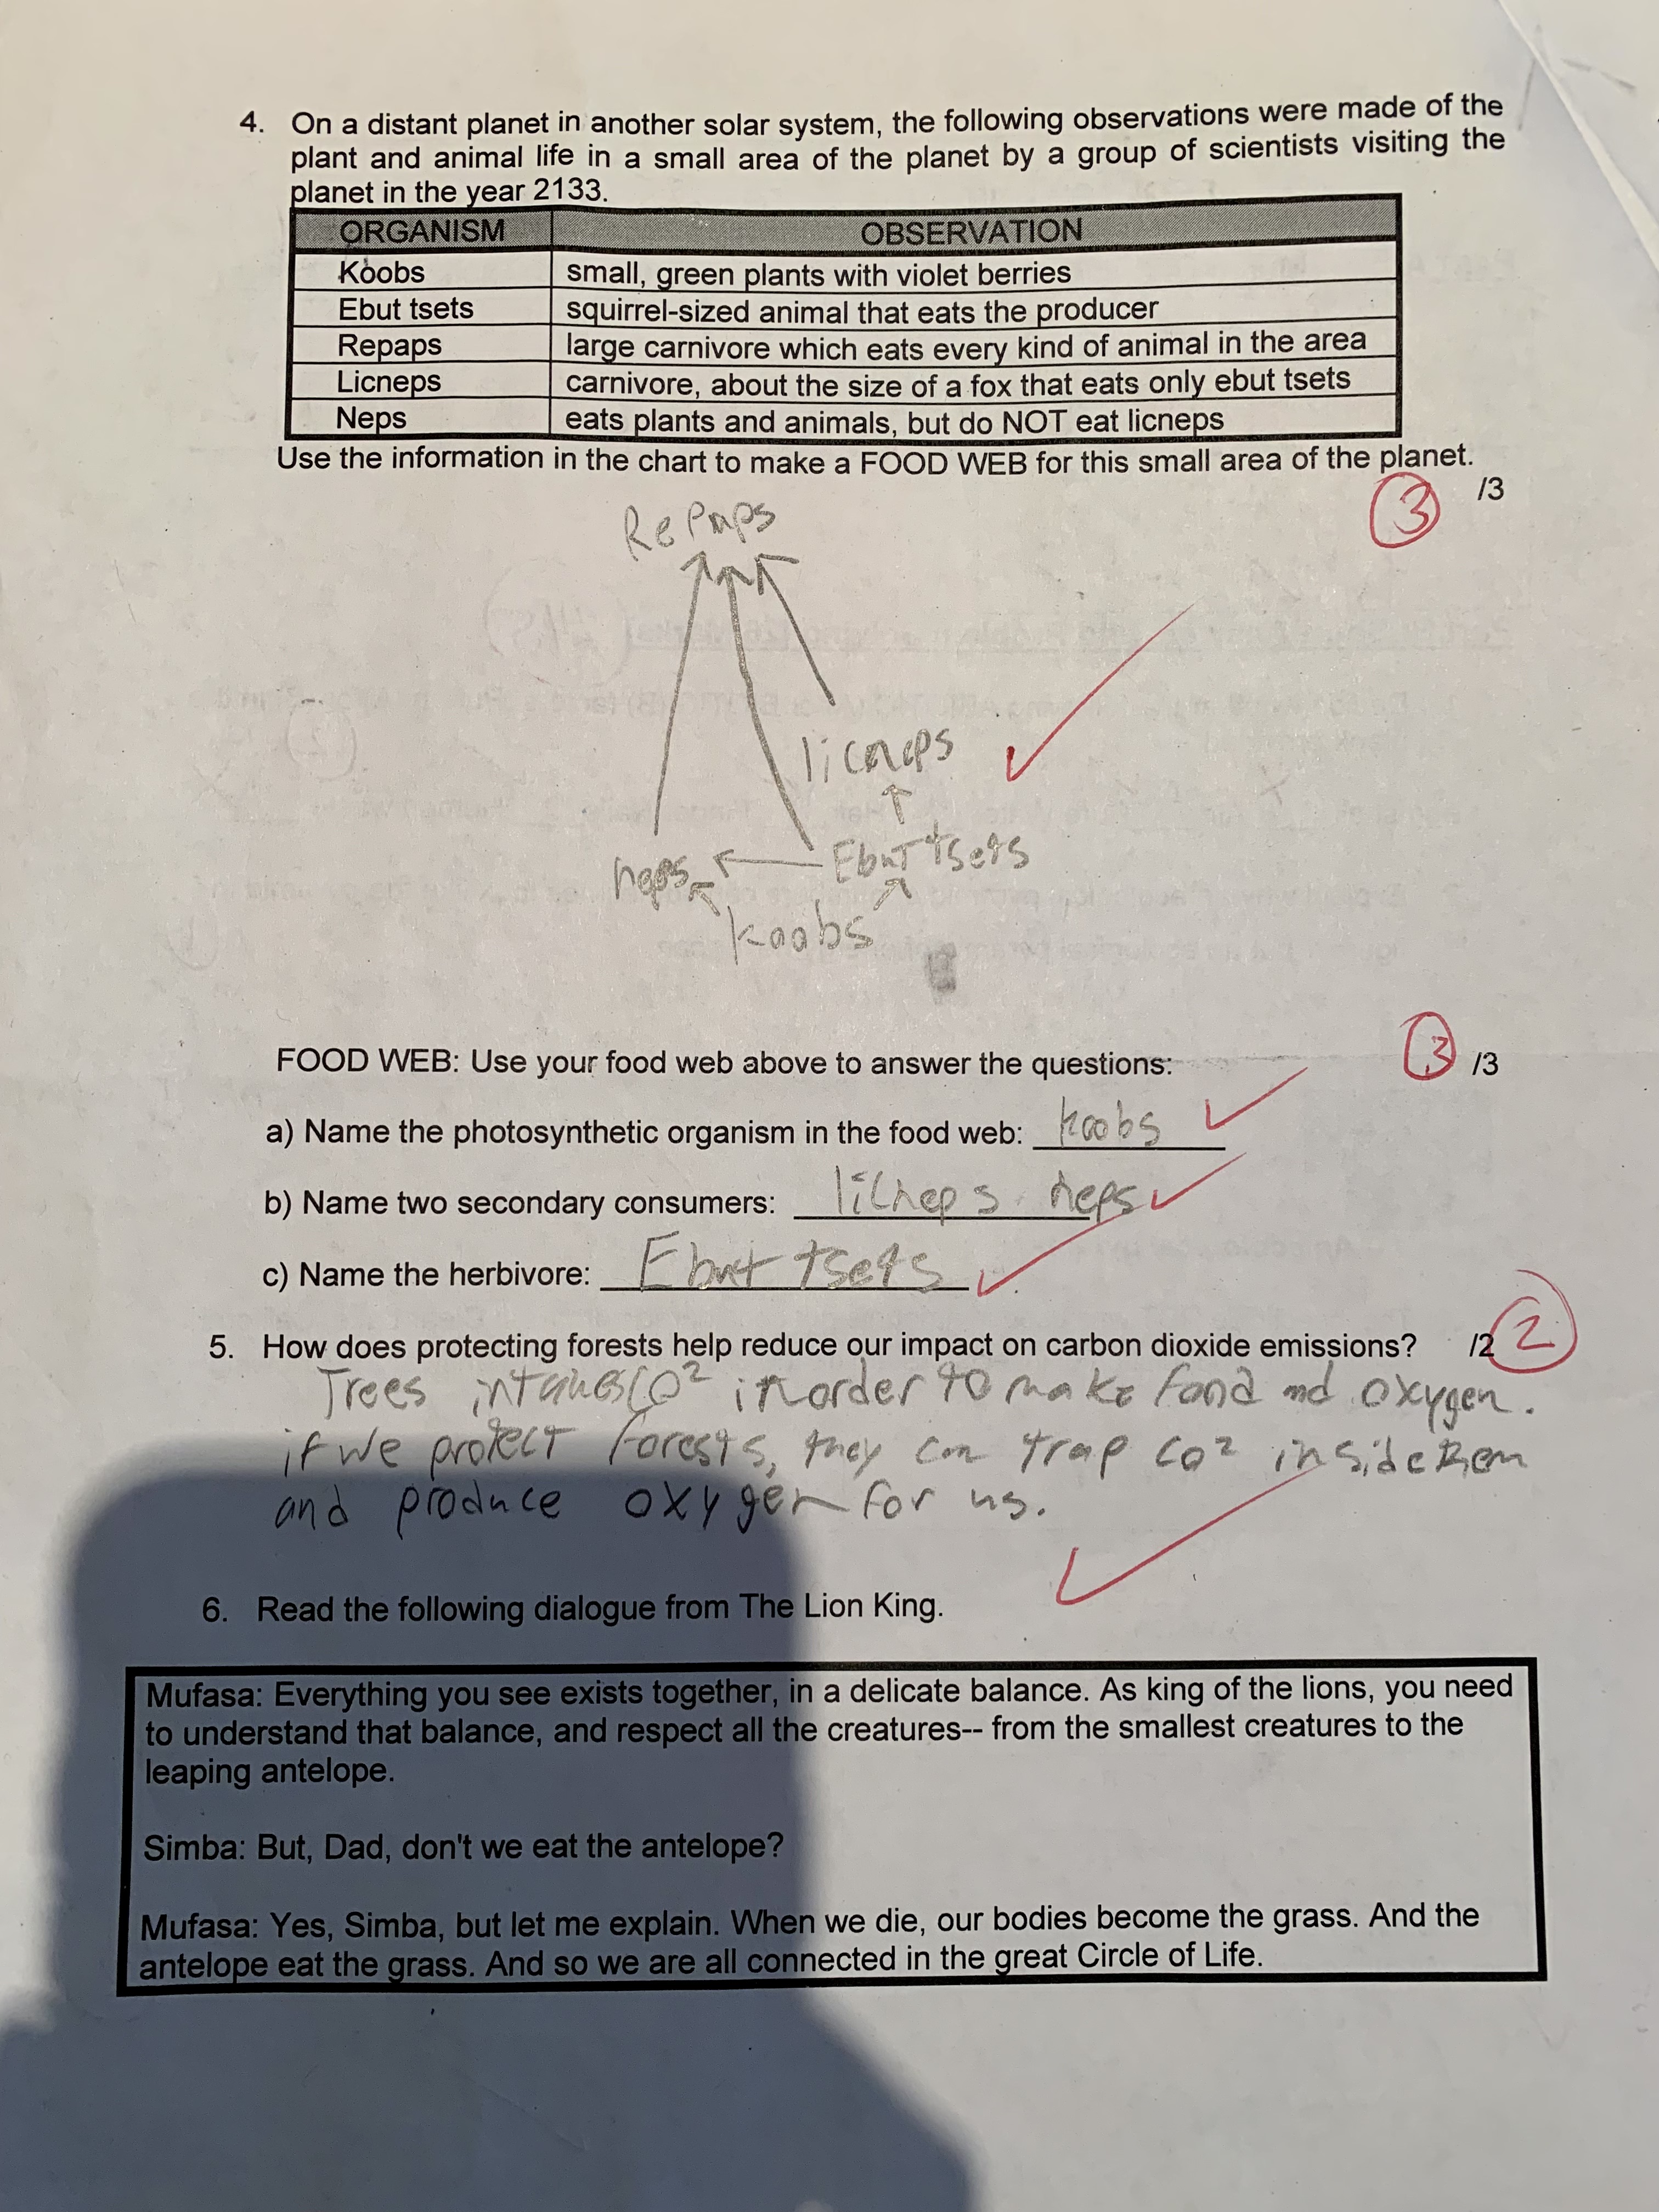 4. On a distant planet in another solar system, the following observations were made of the
plant and animal life in a small area of the planet by a group of scientists visiting the
planet in the year 2133.
ORGANISM OBSERVATION
Koobs small, green plants with violet berries
Ebut tsets squirrel-sized animal that eats the producer
Repaps large carnivore which eats every kind of animal in the area
Licneps carnivore, about the size of a fox that eats only ebut tsets
Neps eats plants and animals, but do NOT eat licneps
Use the information in the chart to make a FOOD WEB for this small area of the planet.
3 /3
Repaps
licneps
neps Ebut tsets
koobs
FOOD WEB: Use your food web above to answer the questions:
3 /3
a) Name the photosynthetic organism in the food web: koobs
b) Name two secondary consumers: licneps neps
c) Name the herbivore: Ebut tsets
5. How does protecting forests help reduce our impact on carbon dioxide emissions? /2 2
Trees CO² in order to make and oxygen.
if we protect forests, they can trap CO² inside them
and produce oxygen for us.
6. Read the following dialogue from The Lion King.
Mufasa: Everything you see exists together, in a delicate balance. As king of the lions, you need
to understand that balance, and respect all the creatures-- from the smallest creatures to the
leaping antelope.
Simba: But, Dad, don't we eat the antelope?
Mufasa: Yes, Simba, but let me explain. When we die, our bodies become the grass. And the
antelope eat the grass. And so we are all connected in the great Circle of Life.